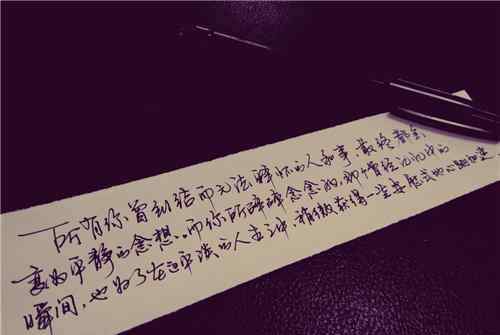 所有你曾纠结而无法释怀的人和事，最终都会
变为平静的念想。而你所念念的，曾经记忆中的
瞬间，也为了在这平淡的人生之中，稍微获得一些式的心跳加速